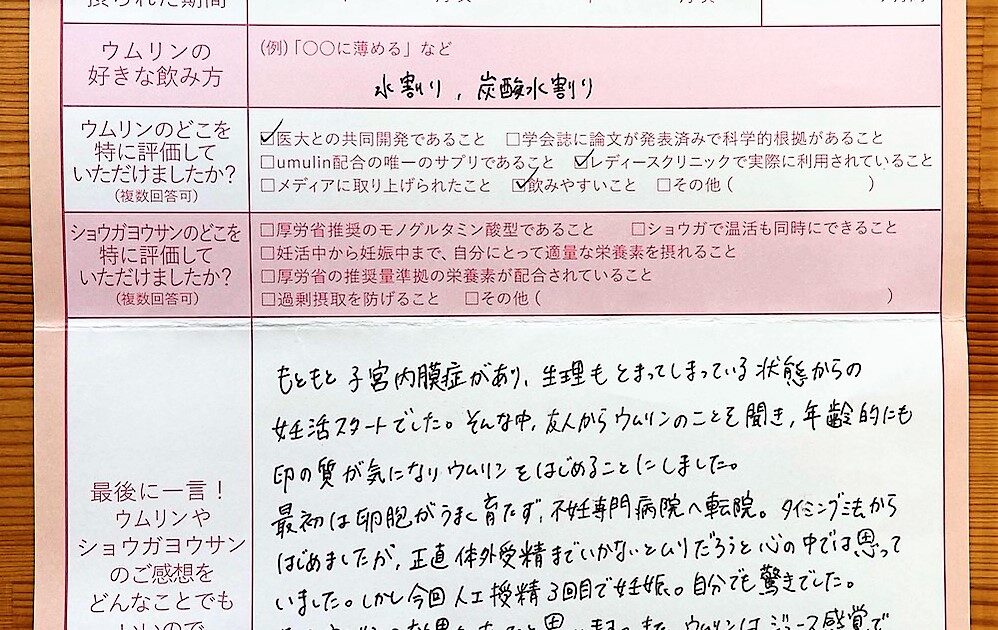 摂られた期間
ウムリンの
好きな飲み方
(例)「〇〇に薄める」など
水割り, 炭酸水割り
ウムリンのどこを
特に評価して
いただけましたか?
(複数回答可)
☑医大との共同開発であること □学会誌に論文が発表済みで科学的根拠があること
□umulin配合の唯一のサプリであること ☑レディースクリニックで実際に利用されていること
□メディアに取り上げられたこと ☑飲みやすいこと □その他( )
ショウガヨウサンのどこを
特に評価して
いただけましたか?
(複数回答可)
□厚労省推奨のモノグルタミン酸型であること □ショウガで温活も同時にできること
□妊活中から妊娠中まで、自分にとって適量な栄養素を摂れること
□厚労省の推奨量準拠の栄養素が配合されていること
□過剰摂取を防げること □その他( )
最後に一言!
ウムリンや
ショウガヨウサン
のご感想を
どんなことでも
いいので
もともと子宮内膜症があり、生理もとまってしまっている状態からの
妊活スタートでした。そんな中、友人からウムリンのことを聞き、年齢的にも
卵の質が気になりウムリンをはじめることにしました。
最初は卵胞がうまく育たず、不妊専門病院へ転院。タイミング法から
はじめましたが、正直体外受精までいかないとムリだろうと心の中では思って
いました。しかし今回人工授精3回目で妊娠。自分でも驚きでした。
ウムリンはジュース感覚で